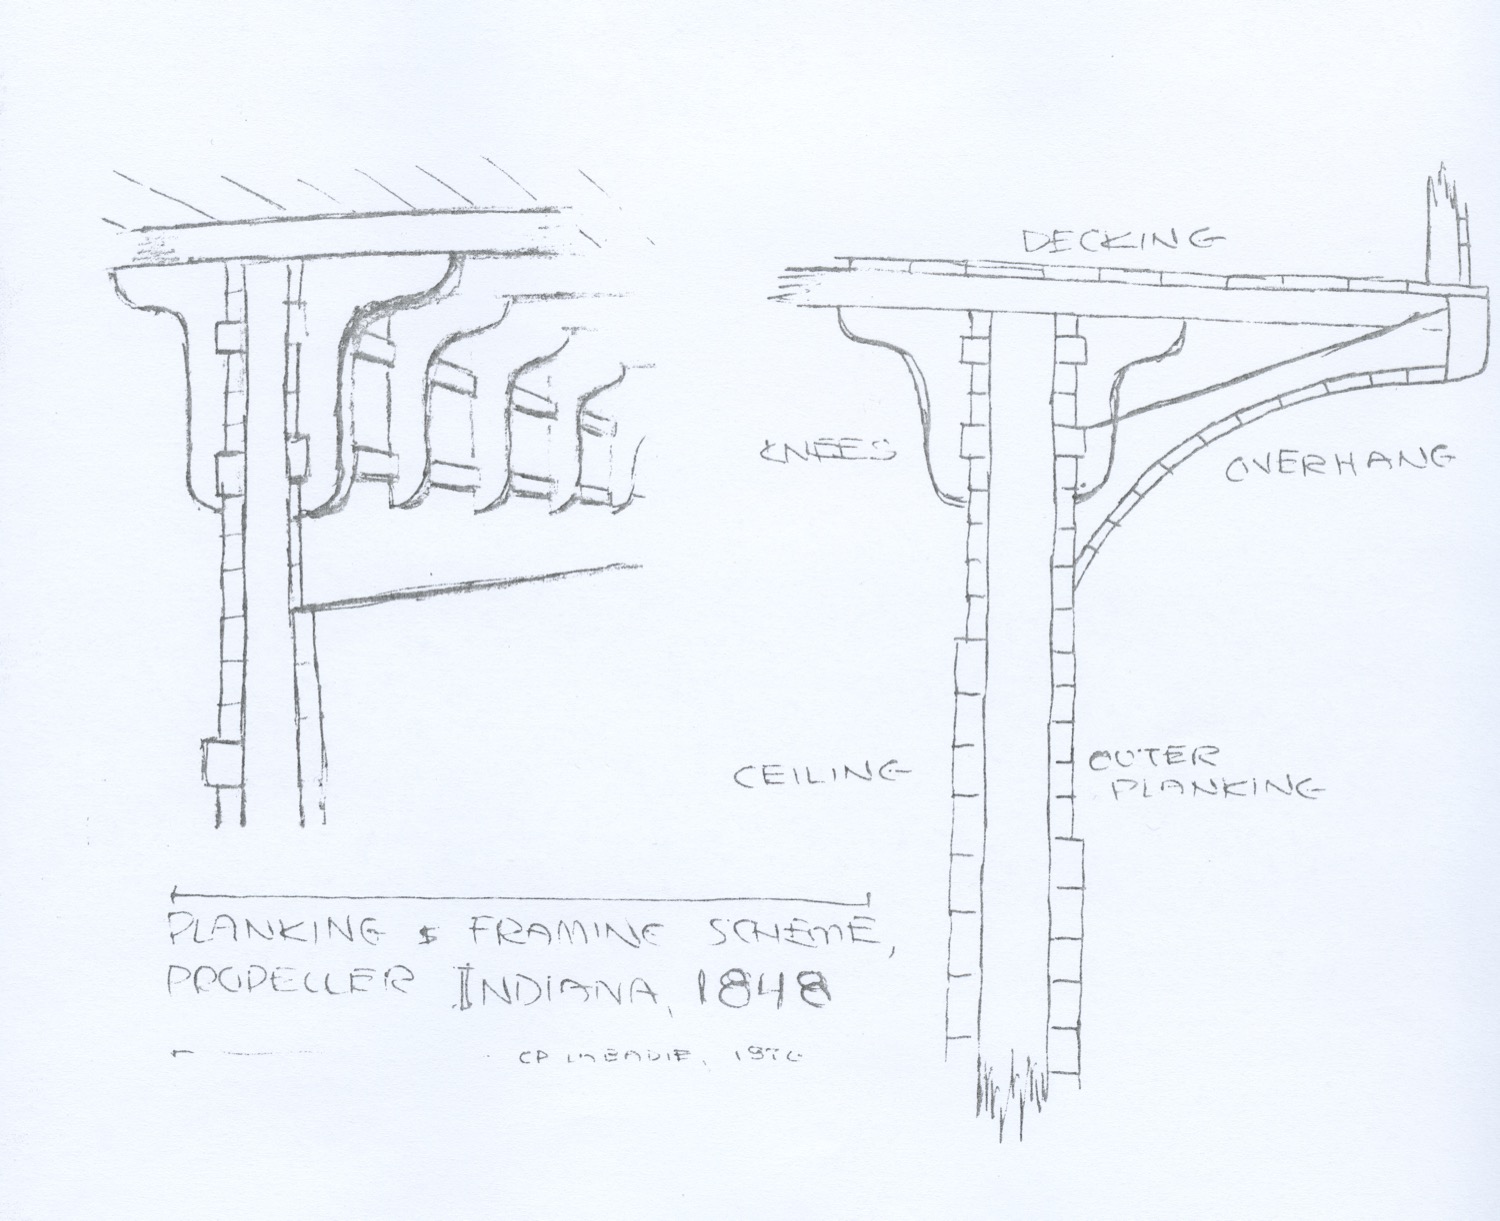 DECKING
KNEES
OVERHANG
CEILING
OUTER
PLANKING
PLANKING & FRAMING SCHEME,
PROPELLER INDIANA, 1848
CP